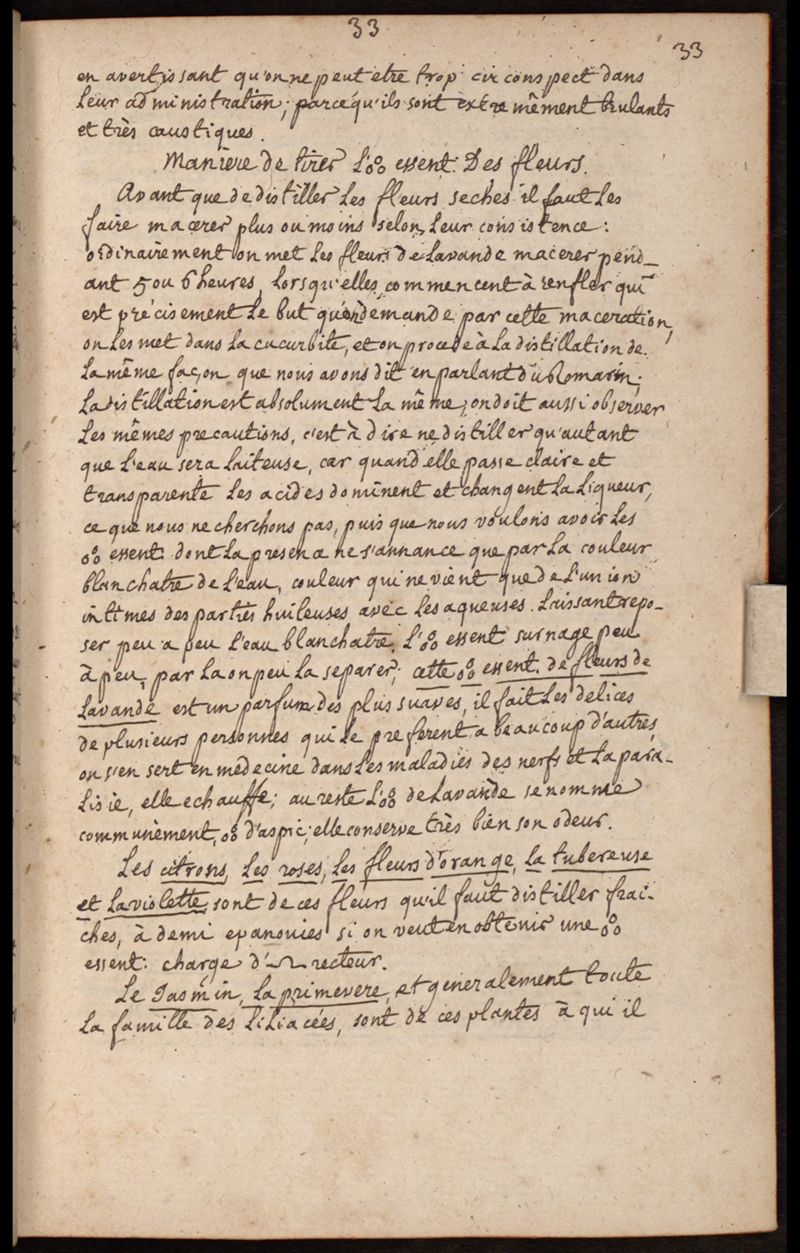 33
33
en avertissant qu'on ne peut etre trop circonspect dans
leur administration; parcequ'ils sont extremêment brulants
et très caustiques.
Maniere de tirer l'o%o essent: Des fleurs.
Avant que de distiller les fleurs seches il faut les
faire macerer plus ou moins selon leur consistence:
ordinairement on met les fleurs de Lavande macerer pend_
ant 5 ou 6 heures, lorsqu'elles commencent à renfler qui
est précisement le but qu'on demande par cette maceration,
on les met dans la cucurbite, et on procede à la distillation de
la même façon que nous avons dit en parlant du Romarin;
la distillation est absolument la même; on doit aussi observer
les mêmes precautions, c'est à dire ne distiller qu'autant
que l'eau sera laiteuse, car quand elle passe claire et
transparente les acides dominent et changent la liqueur,
ce que nous ne cherchons pas, puis que nous voulons avoir les
o%o essent: dont la presence ne s'annance que par la couleur
blanchatre de l'eau, couleur qui ne vient que de l'union
intimes des parties huileuses avec les aqueuses. Laissant repo_
ser peu a peu l'eau blanchatre, l'o%o essent surnage peu
à peu, par la on peu la separer; cette o%o essent. de fleurs de
Lavande est un parfum des plus suaves, il fait les delices
de plusieurs personnes qui le preferent a beaucoup d'autres,
on s'en sert en médecine dans les maladies des nerfs et la para_
lisie, elle echauffe; au reste l'o%o de Lavande se nomme
communèment, o%o d'aspic; elle conserve très bien son odeur.
Les citrons, les roses, les fleurs d'orange, la tubereuse
et la violette, sont de ces fleurs qu'il faut distiller frai_
ches, à demi epanouies si on veut en obtenir une o%o
essent: charge d'♎ recteur.
Le Jasmin, la primevere, et generalement toute
la famille des liliacées, sont de ces plantes à qui il